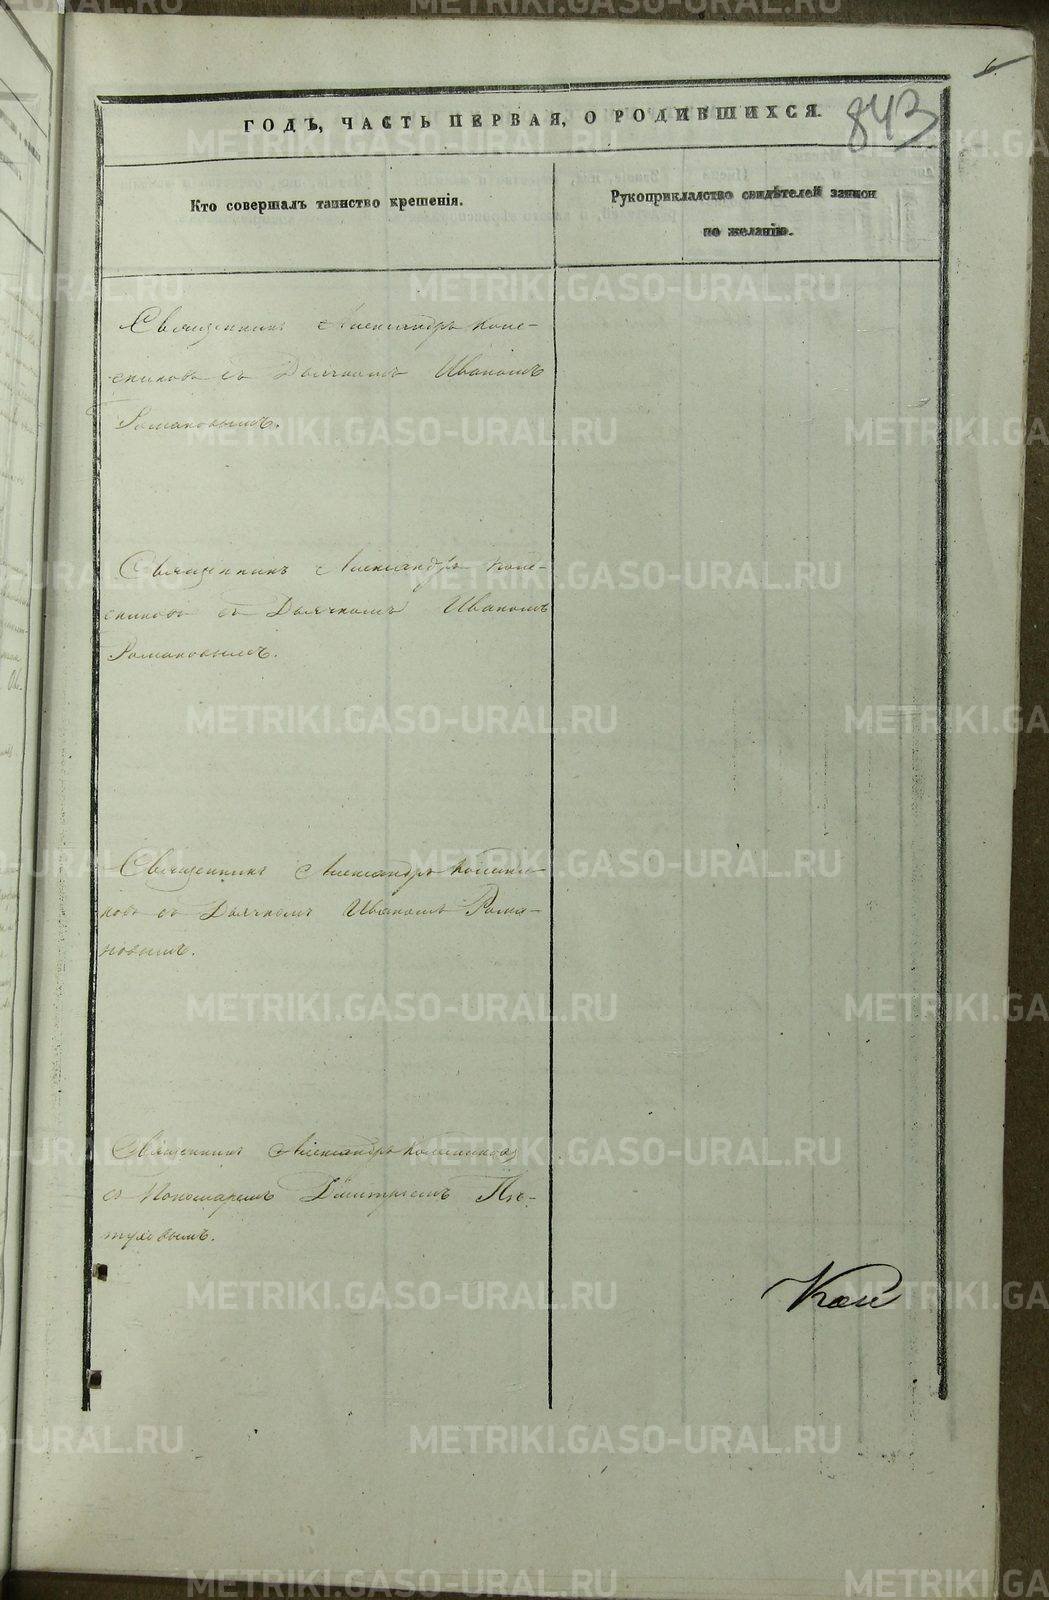 6.
ГОДЪ, ЧАСТЬ ПЕРВАЯ, О РОДИВШИХСЯ.
843
Кто совершалъ таинство крещенія.
Рукоприкладство свидѣтелей записи
по желанію.
Священникъ Александръ Коле-
сниковъ съ Дьячкомъ Иваномъ
Романовымъ.
Священникъ Александръ Коле-
сниковъ съ Дьячкомъ Иваномъ
Романовымъ.
Священникъ Александръ Колесни-
ковъ съ Дьячкомъ Иваномъ Рома-
новымъ.
Священникъ Александръ Колесниковъ
съ Пономаремъ Димитріемъ Пѣ-
туховымъ.
METRIKI.GASO-URAL.RU